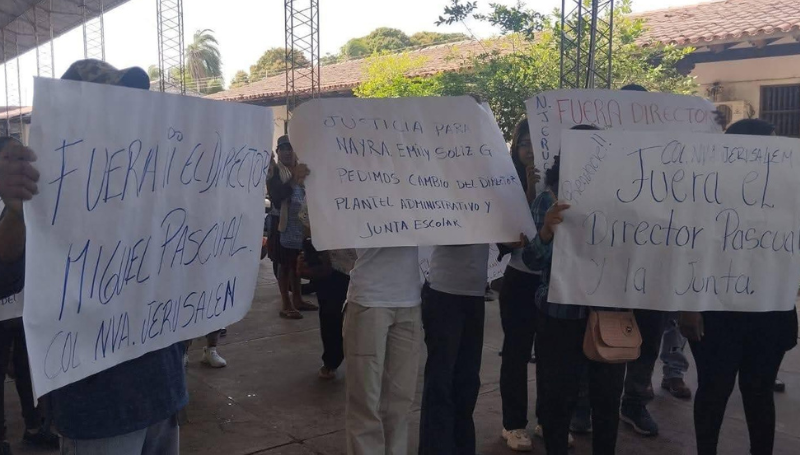 FUERA EL DIRECTOR
MIGUEL PASCUAL.
COL NVA. JERUSALEN
JUSTICIA PARA
NAYRA, EMILY SOLIZ G
PEDIMOS CAMBIO DEL DIRECTOR
PLANTEL ADMINISTRATIVO Y
JUNTA ESCOLAR
FUERA DIRECTOR
N. JERU
COL. NVA JERUSALEM
Fuera el
Director Pascual
y la Junta.